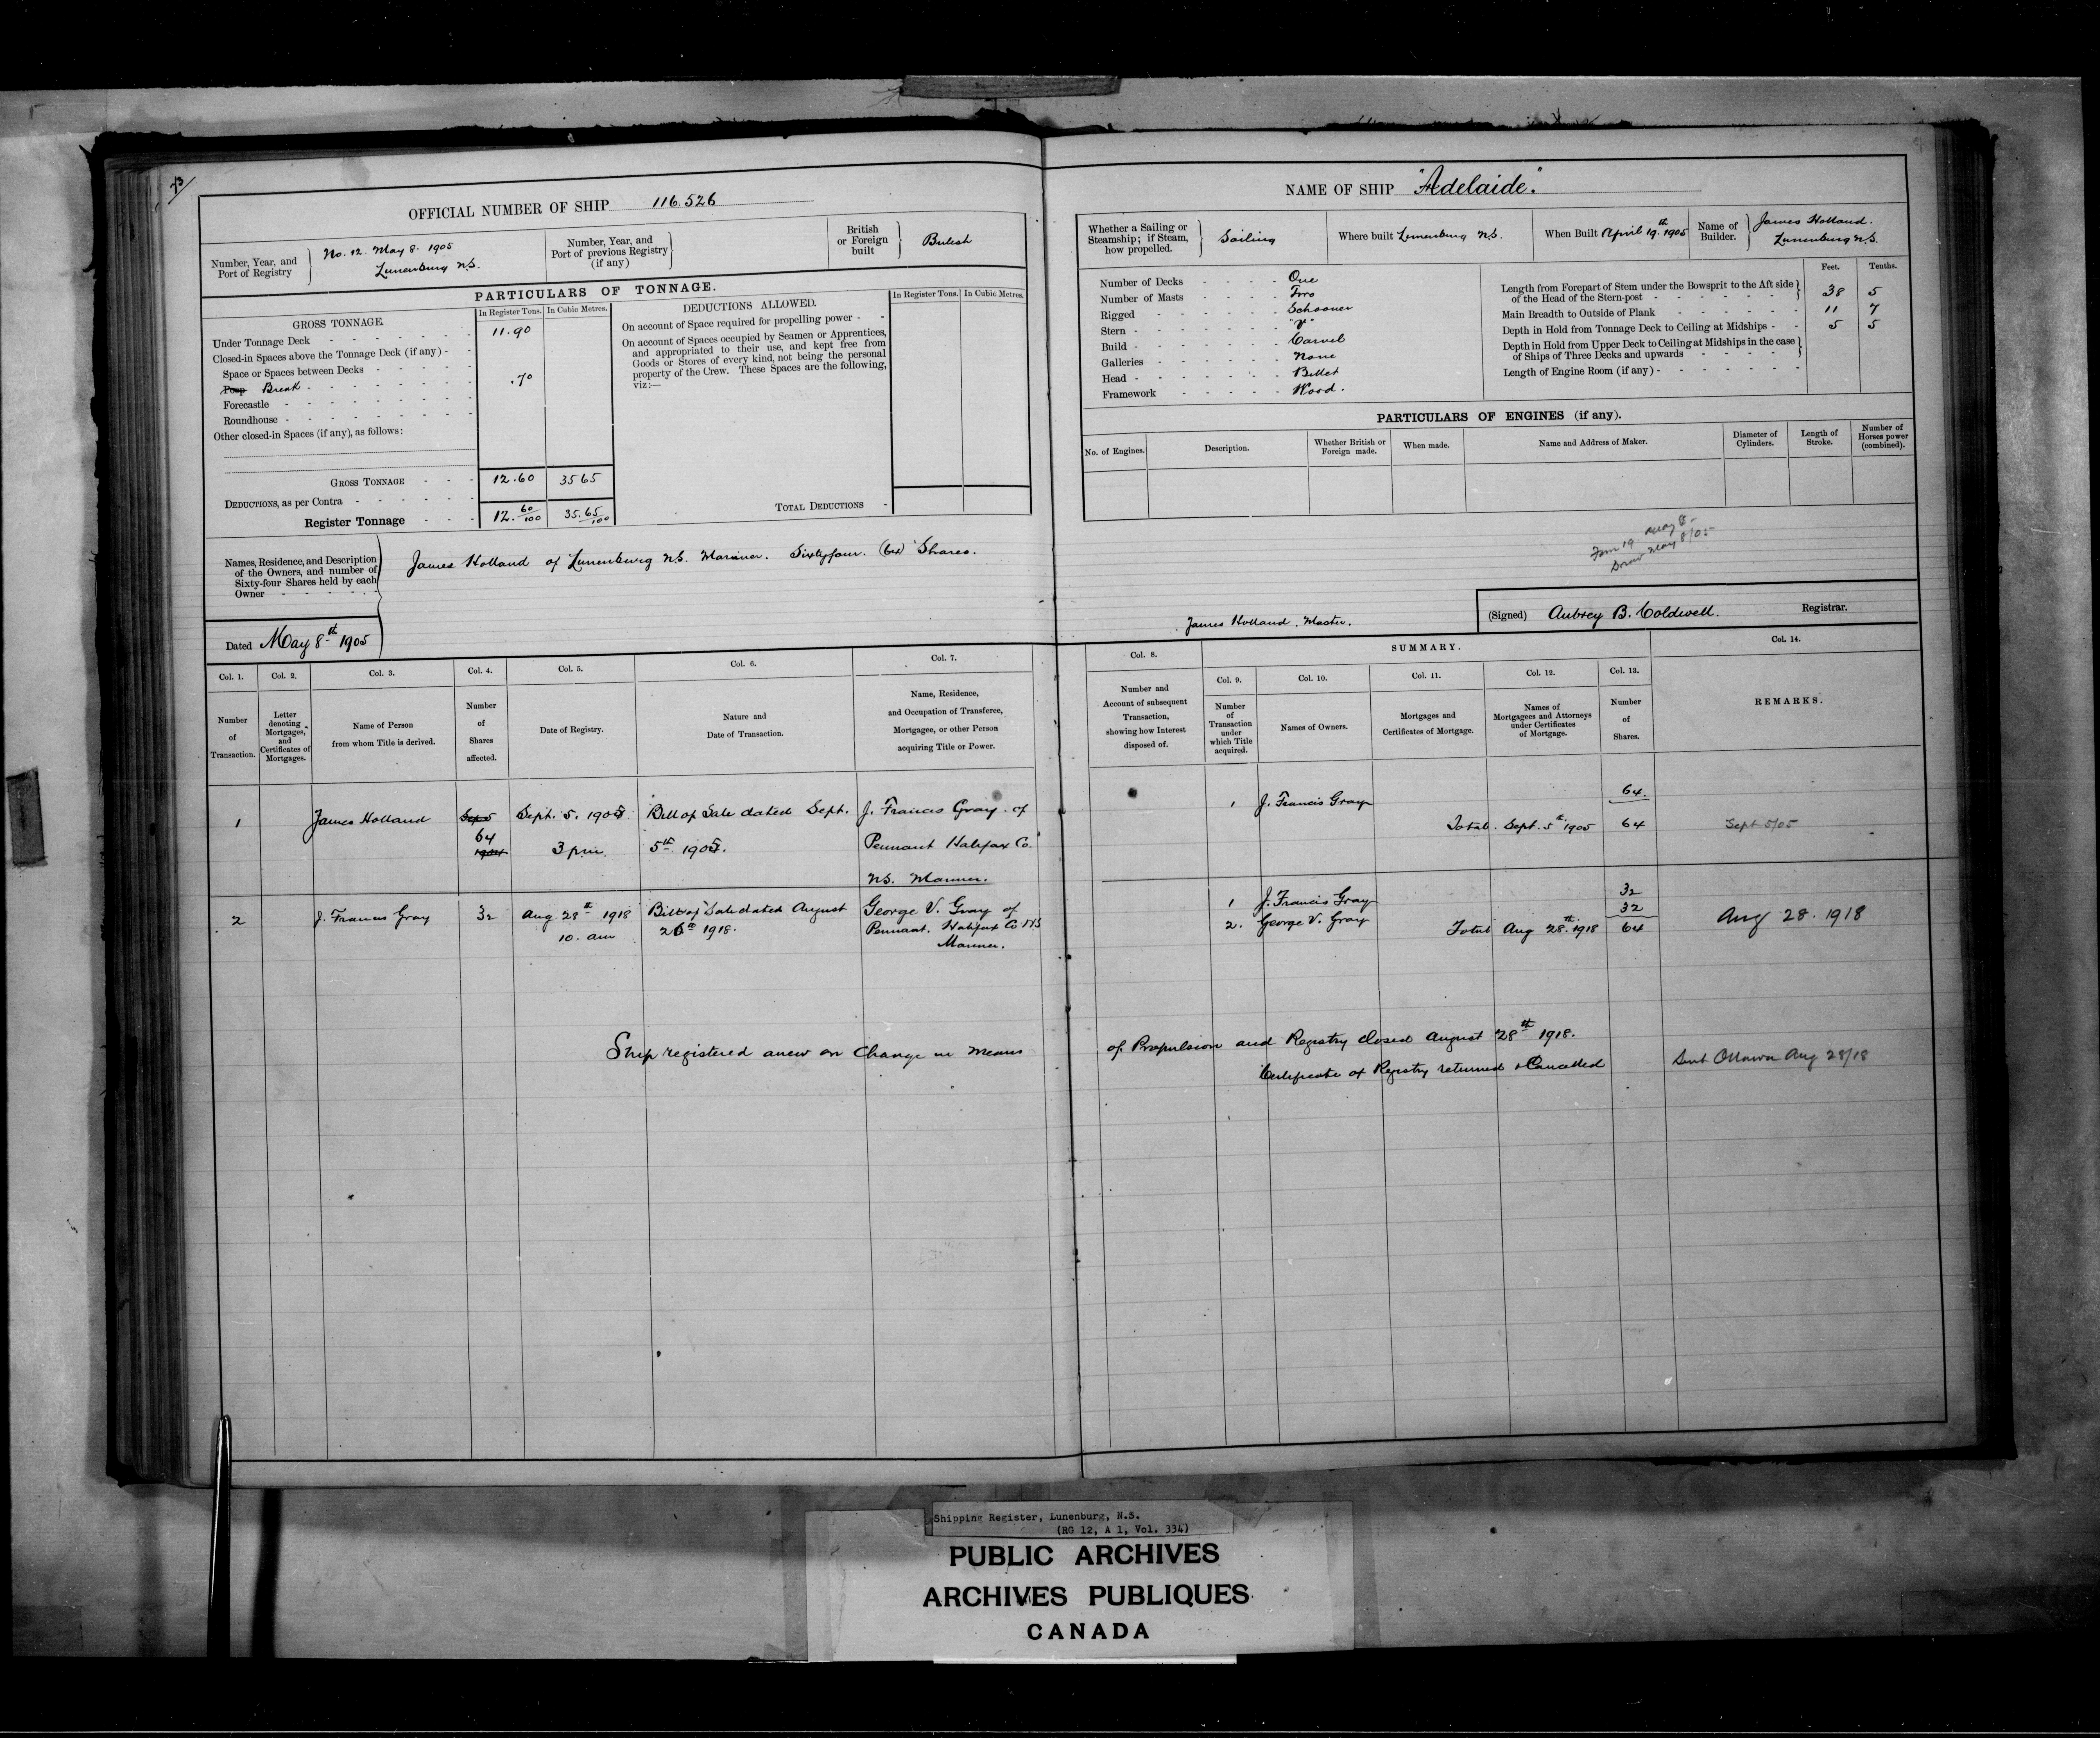 73
OFFICIAL NUMBER OF SHIP 116.526
Number, Year, and Port of Registry } No. 12. May 8. 1905
Lunenburg N.S.
Number, Year, and Port of previous Registry (if any) }
British or Foreign built } British
PARTICULARS OF TONNAGE.
GROSS TONNAGE.
In Register Tons. In Cubic Metres.
Under Tonnage Deck - - - - - - 11.90
Closed-in Spaces above the Tonnage Deck (if any) - -
Space or Spaces between Decks - - - - -
Poop Break - - - - - - - - .70
Forecastle - - - - - - - - -
Roundhouse - - - - - - - - -
Other closed-in Spaces (if any), as follows:
GROSS TONNAGE - - - 12.60 35 65
DEDUCTIONS, as per Contra - - - - - -
Register Tonnage - - - 12.60/100 35.65/100
DEDUCTIONS ALLOWED.
In Register Tons. In Cubic Metres.
On account of Space required for propelling power - -
On account of Spaces occupied by Seamen or Apprentices,
and appropriated to their use, and kept free from
Goods or Stores of every kind, not being the personal
property of the Crew. These Spaces are the following,
viz:—
TOTAL DEDUCTIONS -
Names, Residence, and Description
of the Owners, and number of
Sixty-four Shares held by each
Owner - - - - - -
James Holland of Lunenburg N.S. Mariner. Sixtyfour. (64) Shares.
Dated May 8th 1905
NAME OF SHIP "Adelaide."
Whether a Sailing or Steamship; if Steam, how propelled. } Sailing
Where built Lunenburg N.S.
When Built April 19.th 1905
Name of Builder. } James Holland.
Lunenburg N.S.
Number of Decks - - - - One
Number of Masts - - - - Two
Rigged - - - - - - Schooner
Stern - - - - - - - "V"
Build - - - - - - - Carvel
Galleries - - - - - - None
Head - - - - - - - Billet
Framework - - - - - Wood.
Feet. Tenths.
Length from Forepart of Stem under the Bowsprit to the Aft side
of the Head of the Stern-post - - - - - - } 38 5
Main Breadth to Outside of Plank - - - - - - 11 7
Depth in Hold from Tonnage Deck to Ceiling at Midships - - 5 5
Depth in Hold from Upper Deck to Ceiling at Midships in the case
of Ships of Three Decks and upwards - - - - }
Length of Engine Room (if any) - - - - - - -
PARTICULARS OF ENGINES (if any).
No. of Engines. Description. Whether British or Foreign made. When made. Name and Address of Maker. Diameter of Cylinders. Length of Stroke. Number of Horses power (combined).
Form 19 May 8-
May 8/05
James Holland. Master.
(Signed) Aubrey B. Coldwell. Registrar.
Col. 1. Col. 2. Col. 3. Col. 4. Col. 5. Col. 6. Col. 7.
Number of Transaction.
Letter denoting Mortgages, and Certificates of Mortgages.
Name of Person from whom Title is derived.
Number of Shares affected.
Date of Registry.
Nature and Date of Transaction.
Name, Residence, and Occupation of Transferee, Mortgagee, or other Person acquiring Title or Power.
Col. 8. SUMMARY. Col. 14.
Col. 9. Col. 10. Col. 11. Col. 12. Col. 13.
Number and Account of subsequent Transaction, showing how Interest disposed of.
Number of Transaction under which Title acquired.
Names of Owners.
Mortgages and Certificates of Mortgage.
Names of Mortgagees and Attorneys under Certificates of Mortgage.
Number of Shares.
REMARKS.
1 James Holland Sept. 5. 1905 Bill of Sale dated Sept. J. Francis Gray of
64 3 pm 5th 1905. Pennant Halifax Co.
N.S. Mariner.
1 J. Francis Gray 64
Total. Sept. 5th 1905 64 Sept 5/05
2 J. Francis Gray 32 Aug 28th 1918 Bill of Sale dated August George V. Gray of
10. am 26th 1918. Pennant. Halifax Co NS
Mariner.
1 J. Francis Gray 32
2. George V. Gray 32
Total Aug 28.th 1918 64 Aug 28. 1918
Ship registered anew on Change in Means of Propulsion and Registry closed August 28th 1918.
Certificate of Registry returned & Cancelled Sent Ottawa Aug 28/18
Shipping Register, Lunenburg, N.S.
(RG 12, A 1, Vol. 334)
PUBLIC ARCHIVES
ARCHIVES PUBLIQUES
CANADA